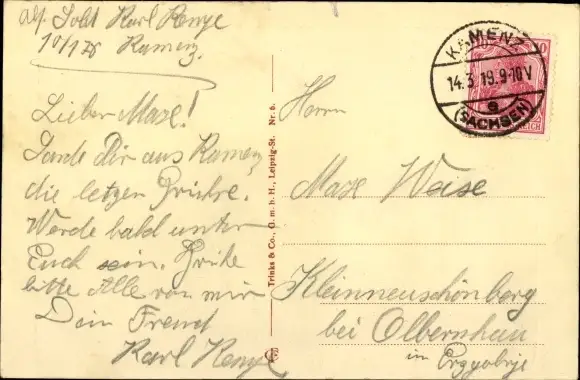 Abs. Sold. Karl Kenze
10/178 Kamenz.
Lieber Maxe!
Sende Dir aus Kamenz
die letzen Grüshe.
Werde bald unter
Euch sein. Grüße
bitte Alle von mir
Dein Freund
Karl Kenze
Trinks & Co., G. m. b. H., Leipzig-St. Nr. 6.
KAMENZ
14.3.19.9-10V
(SACHSEN)
Herrn
Maxe Weise
Kleinneuschönberg
bei Olbernhau
in Erzgebirge